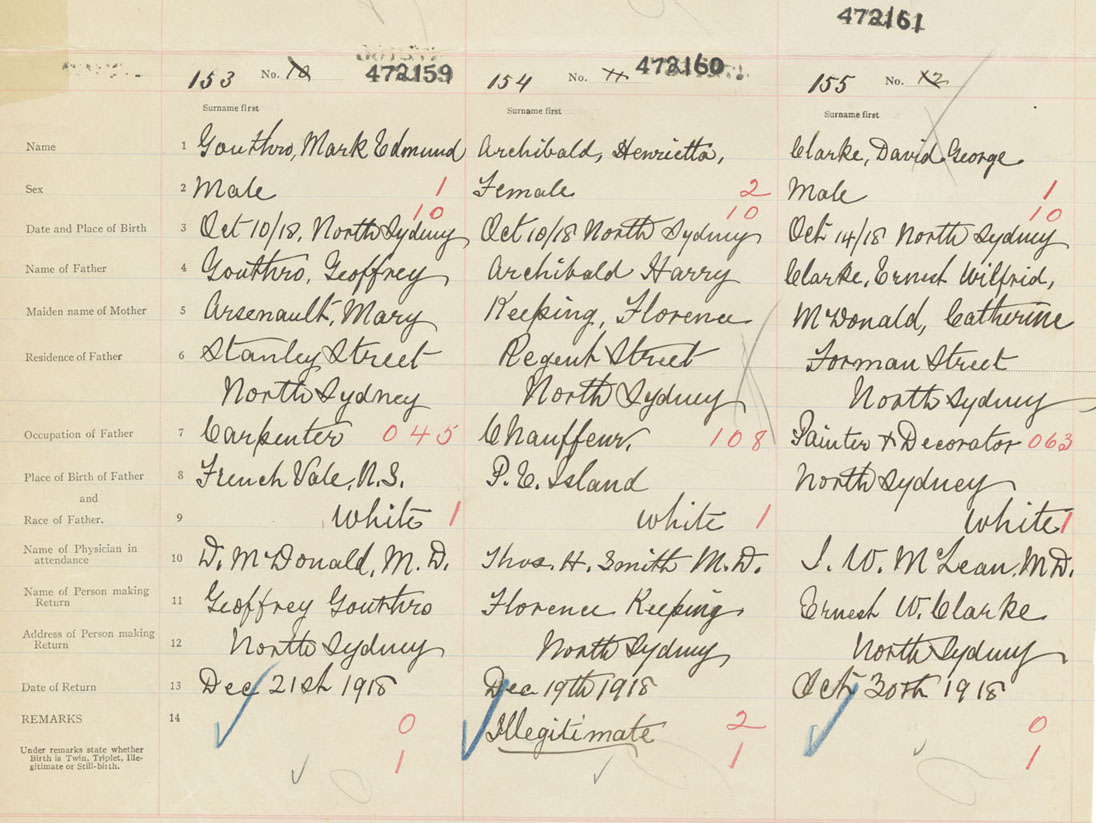 472161
153 No. 10 472159 154 No. 11 472160 155 No. 12
Surname first Surname first Surname first
Name 1 Gouthro, Mark Edmund Archibald, Henrietta, Clarke, David George
Sex 2 Male 1 Female 2 Male 1
10 10 10
Date and Place of Birth 3 Oct 10/18, North Sydney Oct 10/18 North Sydney Oct 14/18 North Sydney
Name of Father 4 Gouthro, Geoffrey Archibald Harry Clarke, Ernest Wilfrid,
Maiden name of Mother 5 Arsenault, Mary Keeping, Florence McDonald, Catherine
Residence of Father 6 Stanley Street Regent Street Forman Street
North Sydney North Sydney North Sydney
Occupation of Father 7 Carpenter 045 Chauffeur, 108 Painter & Decorator 063
Place of Birth of Father 8 French Vale, N.S. P.E. Island North Sydney
and
Race of Father. 9 White 1 White 1 White 1
Name of Physician in
attendance 10 D. McDonald, M.D. Thos. H. Smith M.D. J. W. McLean, M.D.
Name of Person making
Return 11 Geoffrey Gouthro Florence Keeping Ernest W. Clarke
Address of Person making
Return 12 North Sydney North Sydney North Sydney
Date of Return 13 Dec 21st 1918 Dec 19th 1918 Oct 30th 1918
REMARKS 14 0 Illegitimate 2 0
Under remarks state whether
Birth is Twin, Triplet, Ille-
gitimate or Still-birth. 1 1 1